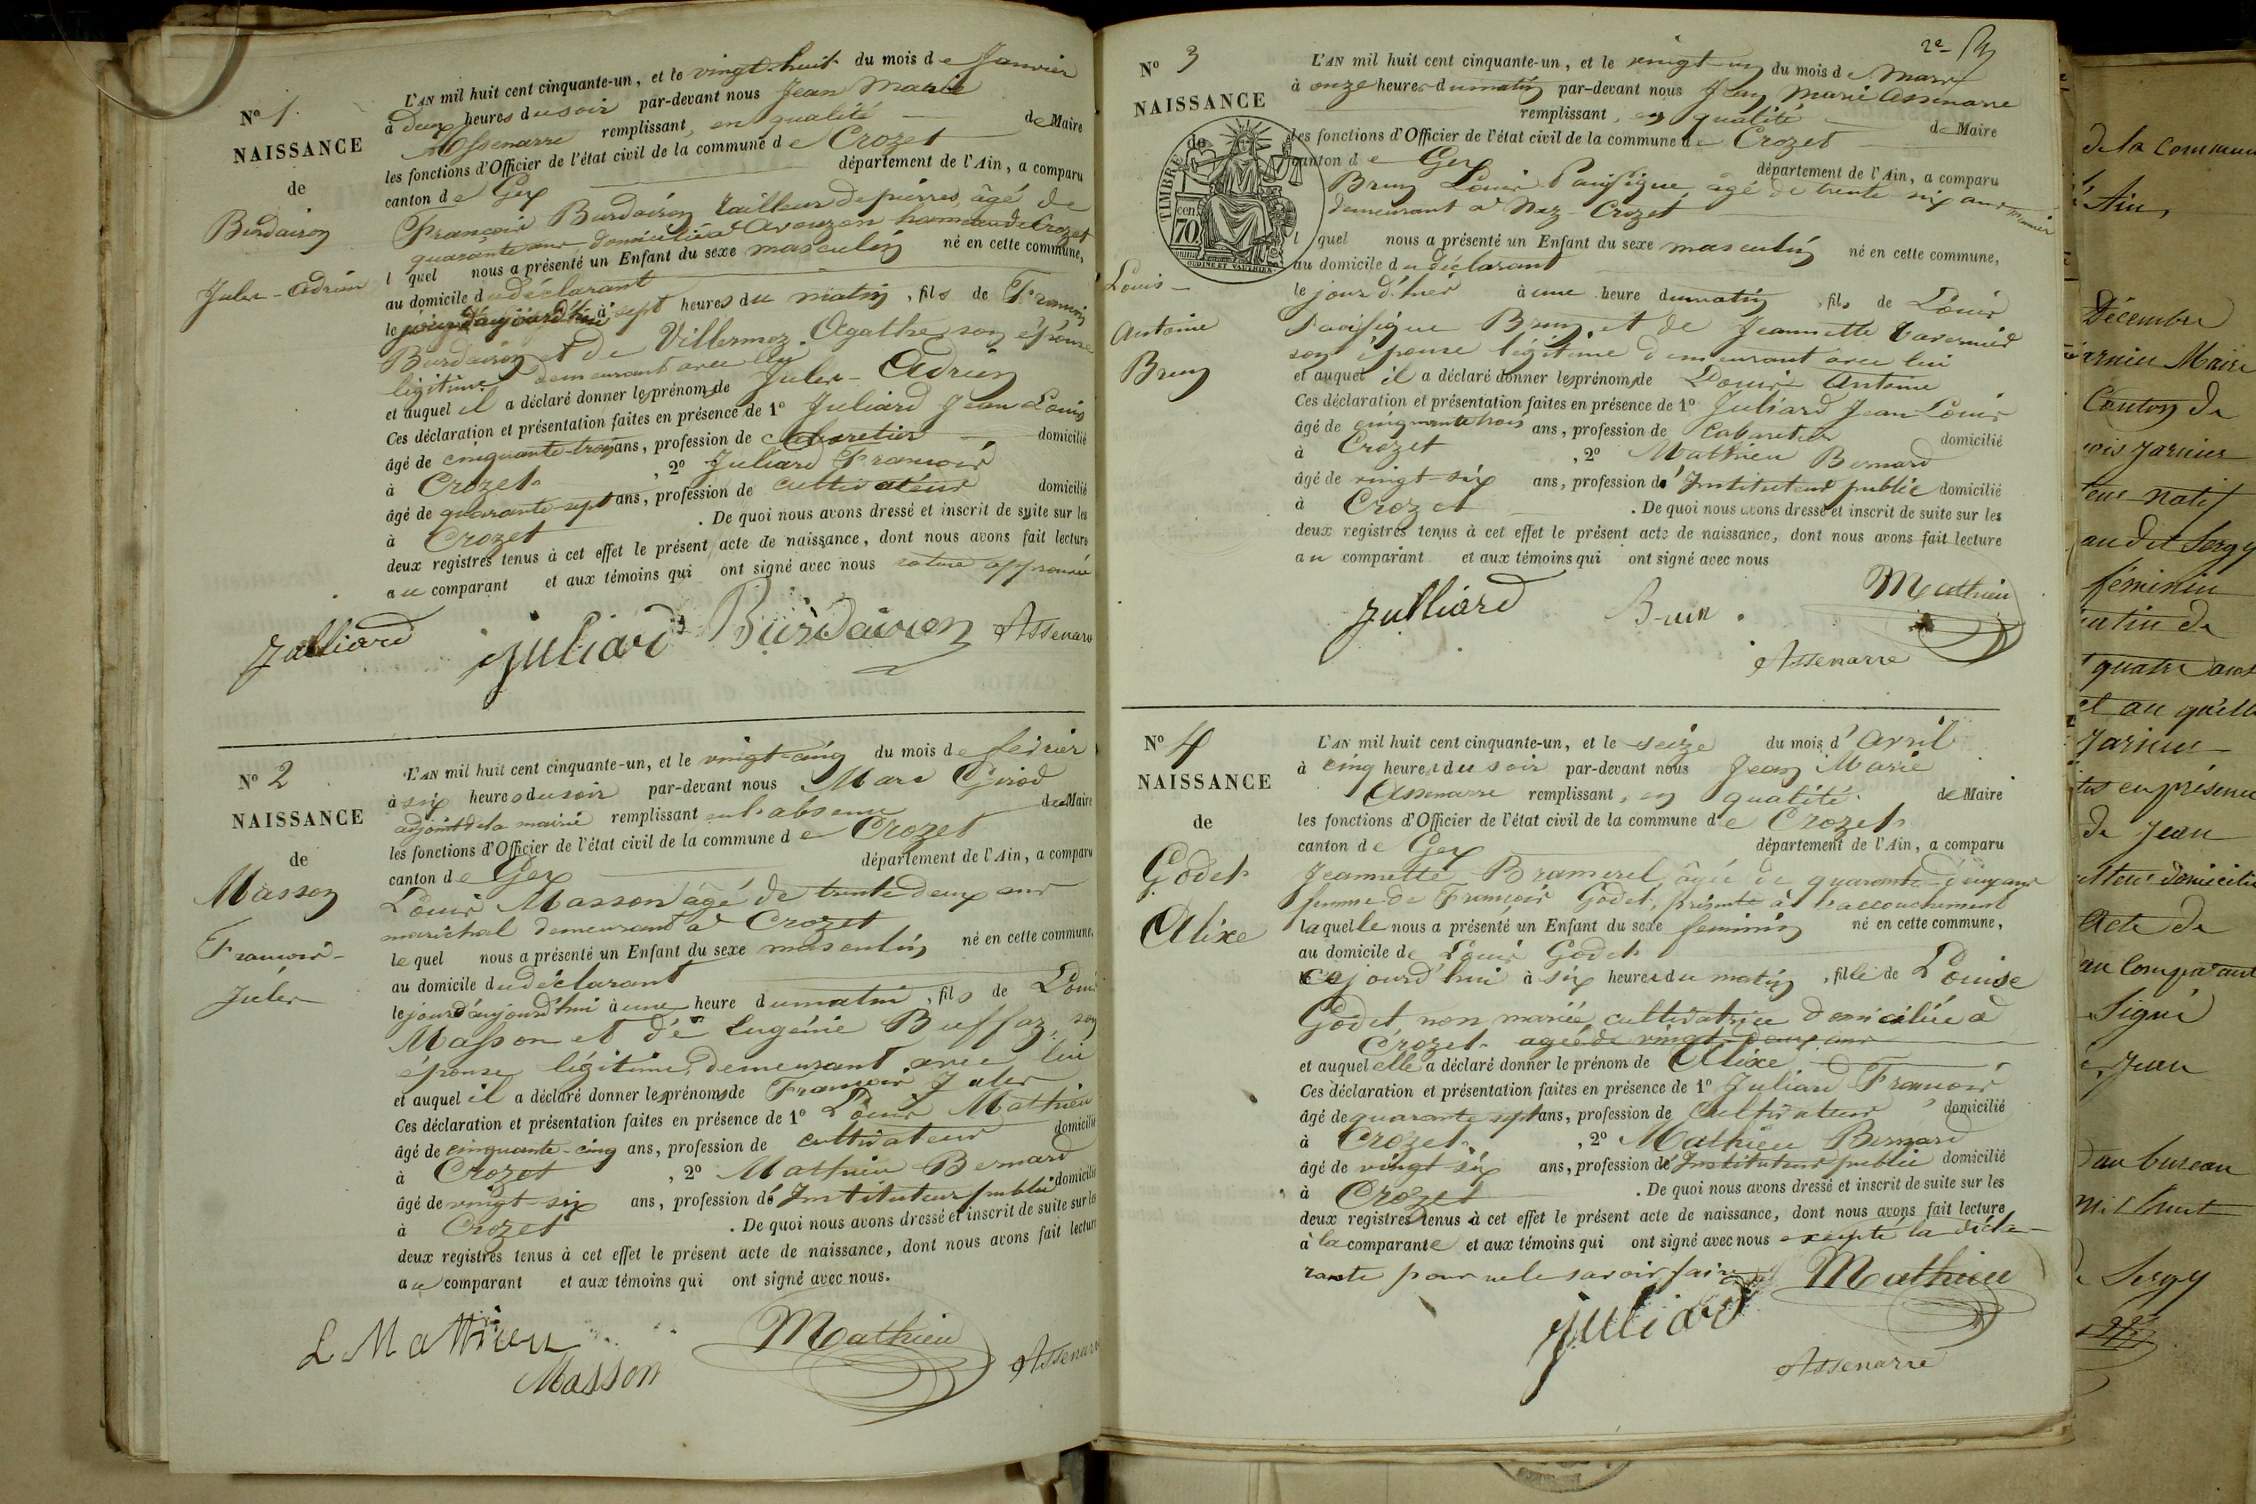 N° 1.
NAISSANCE
de
Burdairon
Jules-Adrien
L'AN mil huit cent cinquante-un, et le vingt-huit du mois de Janvier
à deux heures du soir par-devant nous Jean Marie
Assenarre remplissant, en qualité de Maire
les fonctions d'Officier de l'état civil de la commune de Crozet
canton de Gex département de l'Ain, a comparu
François Burdairon tailleur de pierres, âgé de
quarante ans domicilié à Avouzon hameau de Crozet
l quel nous a présenté un Enfant du sexe masculin né en cette commune,
au domicile du déclarant
le jour d'aujourd'hui à sept heures du matin, fils de François
Burdairon et de Villermoz Agathe son épouse
légitime demeurant avec lui
et auquel il a déclaré donner les prénoms de Jules-Adrien
Ces déclaration et présentation faites en présence de 1° Juliard Jean Louis
âgé de cinquante-trois ans, profession de cabaretier domicilié
à Crozet, 2° Juliard François
âgé de quarante-sept ans, profession de cultivateur domicilié
à Crozet. De quoi nous avons dressé et inscrit de suite sur les
deux registres tenus à cet effet le présent acte de naissance, dont nous avons fait lecture
au comparant et aux témoins qui ont signé avec nous rature approuvée
Julliard Juliard Burdairon Assenarre
N° 2
NAISSANCE
de
Masson
François-
Jules
L'AN mil huit cent cinquante-un, et le vingt-cinq du mois de février
à six heures du soir par-devant nous Marc Girod
adjoint de la mairie remplissant en l'absence de Maire
les fonctions d'Officier de l'état civil de la commune de Crozet
canton de Gex département de l'Ain, a comparu
Louis Masson âgé de trente deux ans
maréchal demeurant à Crozet
le quel nous a présenté un Enfant du sexe masculin né en cette commune,
au domicile du déclarant
le jour d'aujourd'hui à une heure du matin, fils de Louis
Masson et de Eugénie Buffaz, son
épouse légitime, demeurant avec lui
et auquel il a déclaré donner les prénoms de François Jules
Ces déclaration et présentation faites en présence de 1° Louis Mathieu
âgé de cinquante-cinq ans, profession de cultivateur domicilié
à Crozet, 2° Mathieu Bernard
âgé de vingt-six ans, profession d'Instituteur public domicilié
à Crozet. De quoi nous avons dressé et inscrit de suite sur les
deux registres tenus à cet effet le présent acte de naissance, dont nous avons fait lecture
au comparant et aux témoins qui ont signé avec nous.
L Mathieu Masson Mathieu Assenarre
2e
N° 3
NAISSANCE
de
TIMBRE
cen.
70
Louis-
Antoine
Brun
L'AN mil huit cent cinquante-un, et le vingt-un du mois de Mars
à onze heures du matin par-devant nous Jean Marie Assenarre
remplissant, en qualité de Maire
les fonctions d'Officier de l'état civil de la commune de Crozet
canton de Gex département de l'Ain, a comparu
Brun Louis Pacifique, âgé de trente six ans
demeurant à Naz-Crozet
l quel nous a présenté un Enfant du sexe masculin né en cette commune,
au domicile du déclarant
le jour d'hier à une heure du matin, fils de Louis
Pacifique Brun, et de Jeannette Tavernier
son épouse légitime demeurant avec lui
et auquel il a déclaré donner les prénoms de Louis Antoine
Ces déclaration et présentation faites en présence de 1° Juliard Jean-Louis
âgé de cinquante trois ans, profession de Cabaretier domicilié
à Crozet, 2° Mathieu Bernard
âgé de vingt-six ans, profession d'Instituteur public domicilié
à Crozet. De quoi nous avons dressé et inscrit de suite sur les
deux registres tenus à cet effet le présent acte de naissance, dont nous avons fait lecture
au comparant et aux témoins qui ont signé avec nous
Julliard Brun. Mathieu
Assenarre
N° 4
NAISSANCE
de
Godet
Alixe
L'AN mil huit cent cinquante-un, et le seize du mois d'avril
à cinq heures du soir par-devant nous Jean Marie
Assenarre remplissant, en qualité de Maire
les fonctions d'Officier de l'état civil de la commune de Crozet
canton de Gex département de l'Ain, a comparu
Jeannette Bramerel, âgée de quarante-deux ans
femme de François Godet, présente à l'accouchement
laquelle nous a présenté un Enfant du sexe feminin né en cette commune,
au domicile de Louis Godet
ce jourd'hui à six heures du matin, fille de Louise
Godet non mariée cultivatrice domiciliée à
Crozet âgée de vingt-deux ans
et auquel elle a déclaré donner le prénom de Alixe
Ces déclaration et présentation faites en présence de 1° Juliard François
âgé de quarante sept ans, profession de Cultivateur domicilié
à Crozet, 2° Mathieu Bernard
âgé de vingt-six ans, profession d'Instituteur public domicilié
à Crozet. De quoi nous avons dressé et inscrit de suite sur les
deux registres tenus à cet effet le présent acte de naissance, dont nous avons fait lecture
à la comparante et aux témoins qui ont signé avec nous excepté la décla-
rante pour ne le savoir faire
Juliard Mathieu
Assenarre
de la commune
Ain,
Décembre
Maire
Canton de
natif
au dit Sergy
féminin
matin de
quatre ans
et au quelle
en présence
de Jean
domicilié
Acte de
au Comparant
Signé
Jean
au bureau
mil huit
Sergy